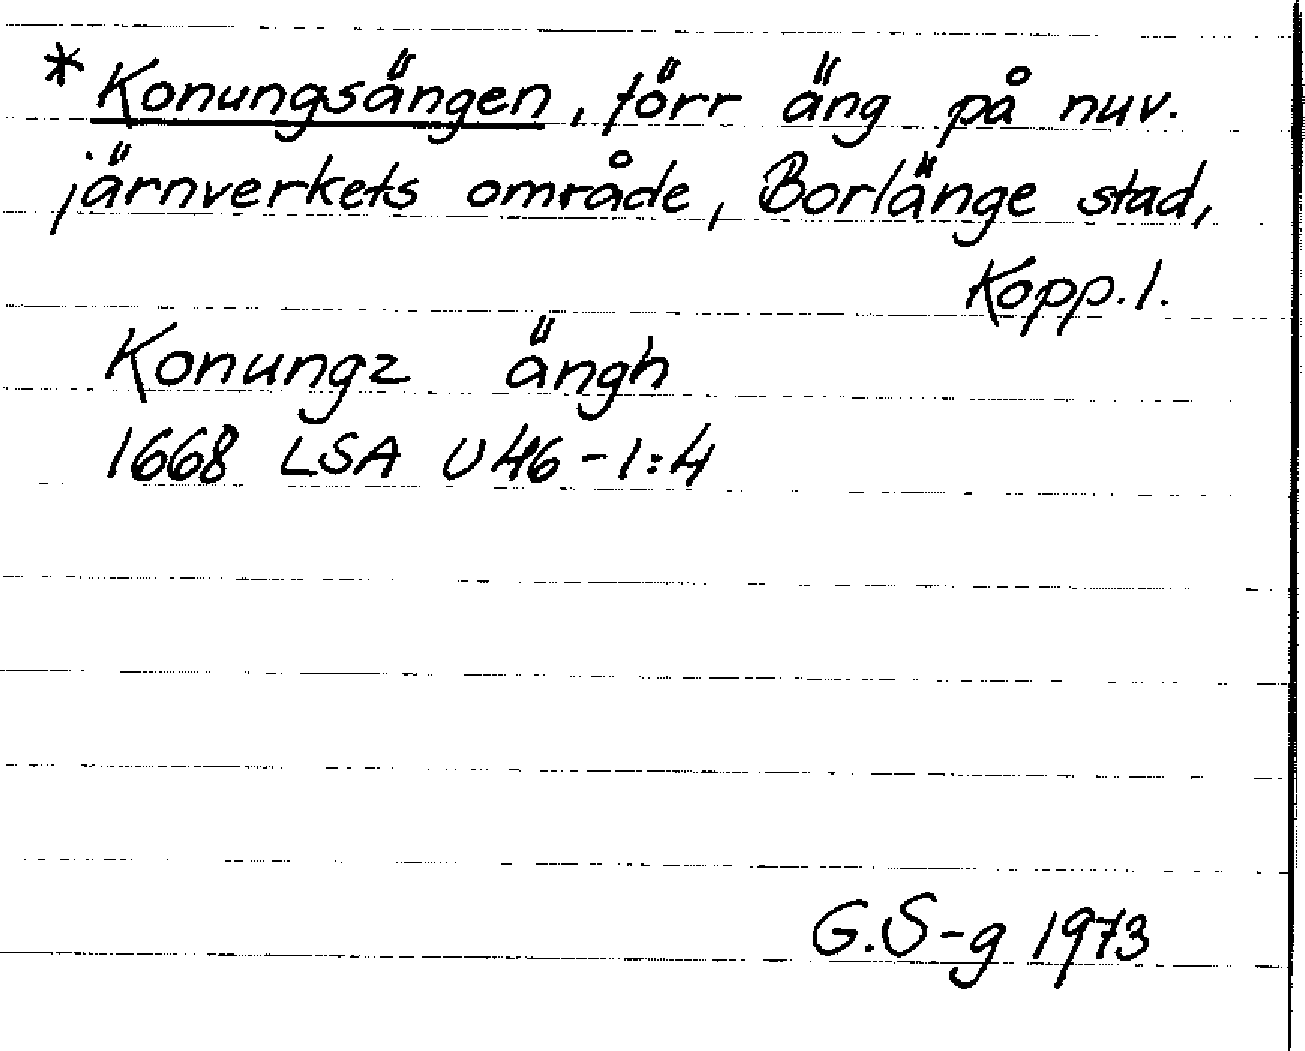 * Konungsängen, förr äng på nuv.
järnverkets område, Borlänge stad,
Kopp. l.
Konungz ängh
1668 LSA U46-1:4
G.S-g 1973